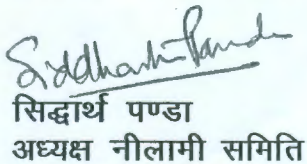 Siddharth Panda
सिद्धार्थ पण्डा
अध्यक्ष नीलामी समिति